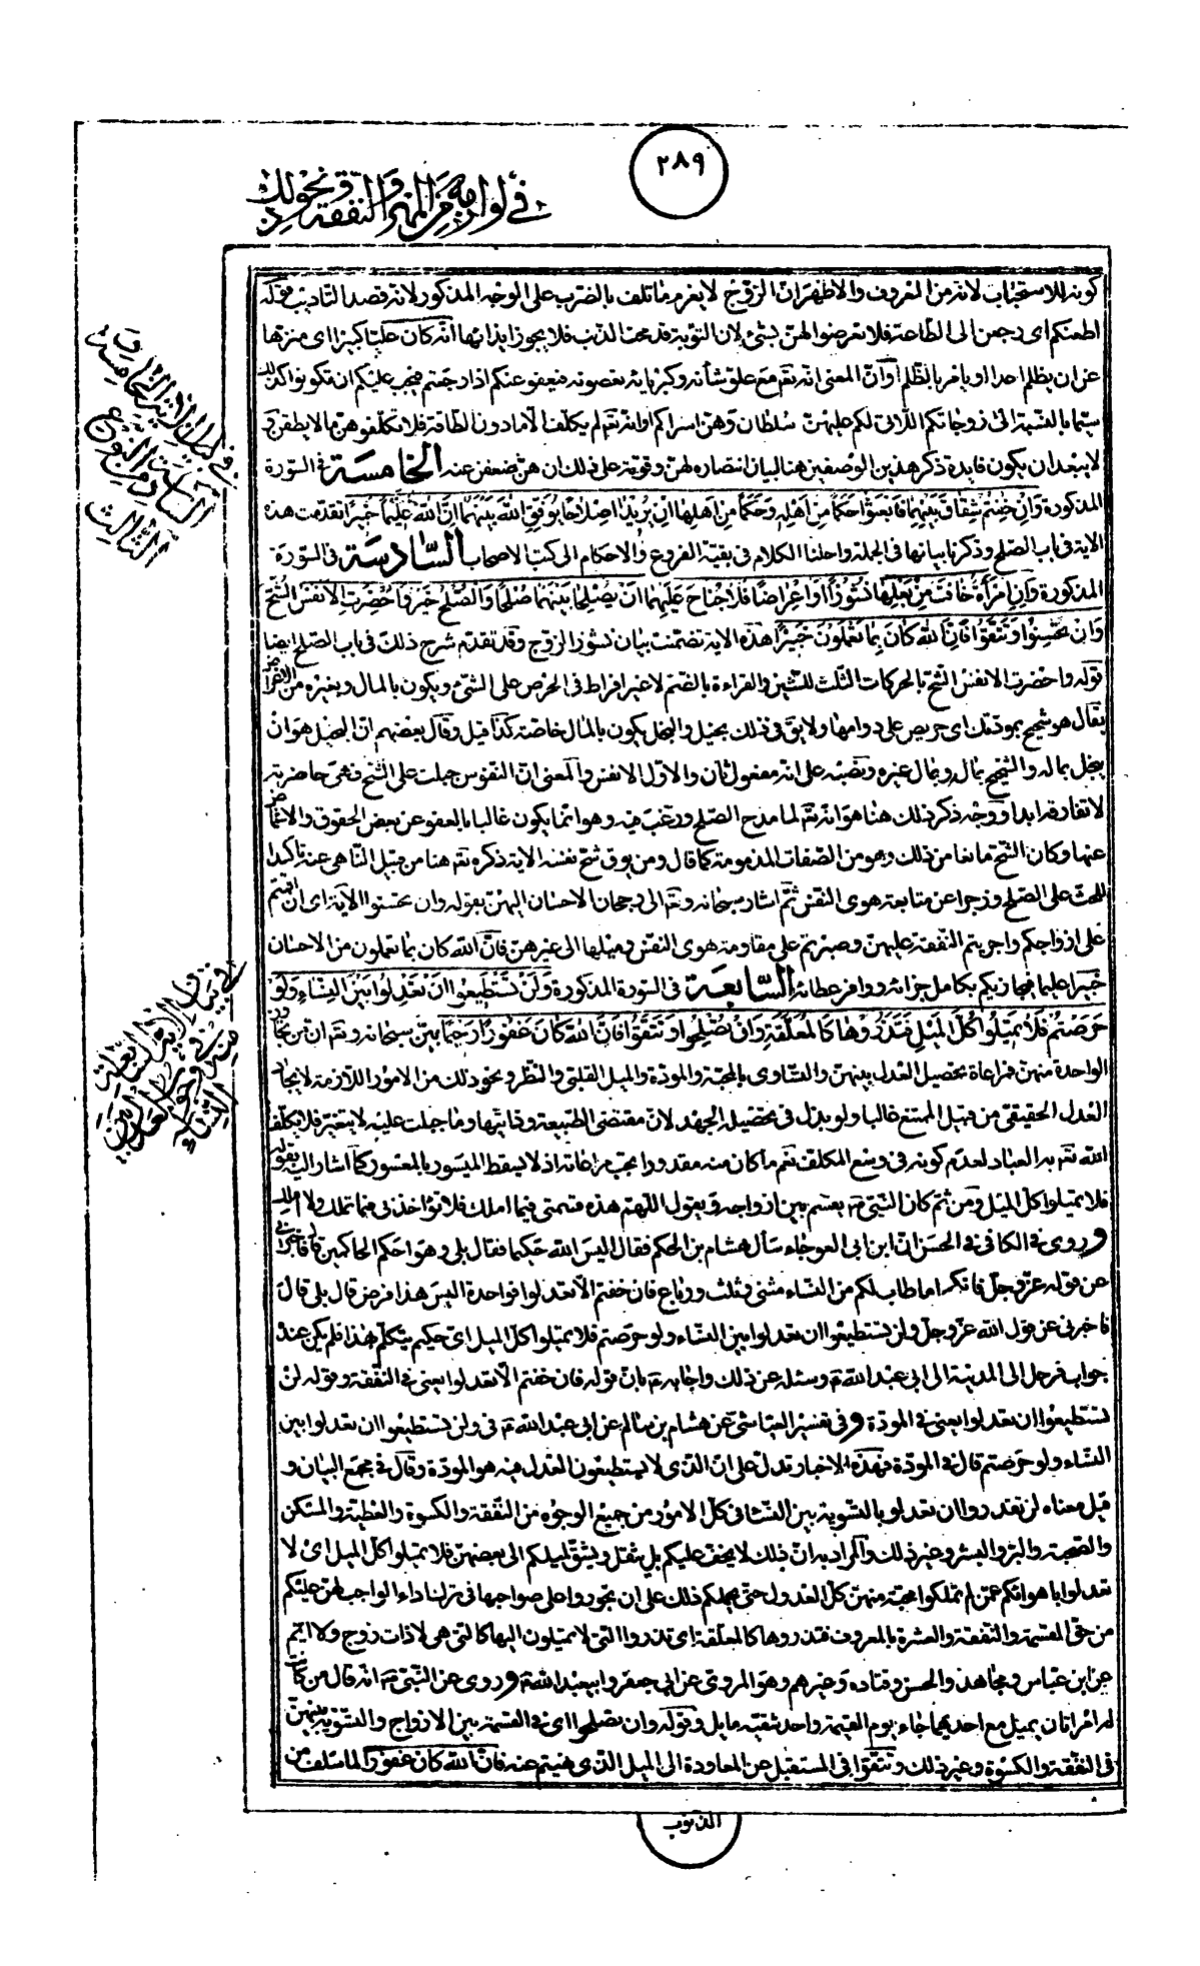 ٢٨٩
في لوازمه من المهر والنفقة ونحو ذلك
كونه للاستحباب لانه من المعروف والاظهر ان الزوج لا يغرم ما تلف بالضرب على الوجه المذكور لانه قصد التاديب قوله
اطعنكم اى رجعن الى الطاعة فلا تعرضوا لهن بشئ لان التوبة قد محت الذنب فلا يجوز ايذائها انه كان عليا كبيرا اى منزها
عن ان يظلم احدا او يامر بالظلم او ان المعنى انه تعم مع علو شأنه وكبريائه تعصونه فيعفو عنكم اذا رجعتم فيجب عليكم ان تكونوا كذلك
سيما بالنسبة الى زوجاتكم اللاتى لكم عليهن سلطان وهن اسراكم او انه تعم لم يكلف الا ما دون الطاقة فلا تكلفوهن ما لا يطقن و
لا يبعد ان يكون فايدة ذكر هذين الوصفين هنا لبيان انتصاره لهن وقوته على ذلك ان هن ضعفن عنه الخامسة في السورة
المذكورة وَاِنْ خِفْتُمْ شِقاقَ بَيْنِهِما فَابْعَثُوا حَكَماً مِنْ اَهْلِهِ وَحَكَماً مِنْ اَهْلِها اِنْ يُرِيدا اِصْلاحاً يُوَفِّقِ اللهُ بَيْنَهُما اِنَّ اللهَ كانَ عَلِيماً خَبِيراً تقدمت هذه
الاية في باب الصلح وذكرنا بيانها في الجملة واحلنا الكلام في بقية الفروع والاحكام الى كتب الاصحاب السادسة في السورة
المذكورة وَاِنِ امْرَأَةٌ خافَتْ مِنْ بَعْلِها نُشُوزاً اَوْ اِعْراضاً فَلا جُناحَ عَلَيْهِما اَنْ يُصْلِحا بَيْنَهُما صُلْحاً وَالصُّلْحُ خَيْرٌ وَاُحْضِرَتِ الْاَنْفُسُ الشُّحَّ
وَاِنْ تُحْسِنُوا وَتَتَّقُوا فَاِنَّ اللهَ كانَ بِما تَعْمَلُونَ خَبِيراً هذه الاية تضمنت بيان نشوز الزوج وقد تقدم شرح ذلك في باب الصلح ايضا
قوله واحضرت الانفس الشح بالحركات الثلث للشين والقراءة بالضم لا غير افراط في الحرص على الشئ ويكون بالمال وبغيره من الاغراض
يقال هو شحيح بمودتك اى حريص على دوامها ولا يق في ذلك بخيل والبخل يكون بالمال خاصة كذا قيل وقال بعضهم ان البخيل هو ان
يبخل بماله والشحيح بماله وبمال غيره ونصبه على انه مفعول ثان والاول الانفس والمعنى ان النفوس جبلت على الشح فهى حاضرته
لا تفارقه ابدا ووجه ذكر ذلك هنا هو انه تعم لما مدح الصلح ورغب فيه وهو انما يكون غالبا بالعفو عن بعض الحقوق والاغماض
عنها وكان الشح مانعا من ذلك وهو من الصفات المذمومة كما قال ومن يوق شح نفسه الاية ذكره تعم هنا من قبيل التناهى عنه تاكيدا
للحث على الصلح وزجرا عن متابعة هوى النفس ثم اشار سبحانه وتعم الى رجحان الاحسان اليهن بقوله وان تحسنوا الاية اى ان اقمتم
على ازواجكم واجريتم النفقة عليهن وصبرتم على مقاومة هوى النفس وميلها الى غيرهن فان الله كان بما تعملون من الاحسان
خبيرا عليما فيجازيكم بكامل جزائه ووافر عطائه السابعة في السورة المذكورة وَلَنْ تَسْتَطِيعُوا اَنْ تَعْدِلُوا بَيْنَ النِّساءِ وَلَوْ
حَرَصْتُمْ فَلا تَمِيلُوا كُلَّ الْمَيْلِ فَتَذَرُوها كَالْمُعَلَّقَةِ وَاِنْ تُصْلِحُوا وَتَتَّقُوا فَاِنَّ اللهَ كانَ غَفُوراً رَحِيماً بين سبحانه وتعم ان من تجاوز
الواحدة منهن فمراعاة تحصيل العدل بينهن والتساوى بالمحبة والمودة والميل القلبى والنظر ونحو ذلك من الامور اللازمة لايجاد
العدل الحقيقى من قبيل الممتنع غالبا ولو بذل في تحصيله الجهد لان مقتضى الطبيعة وما جبلت عليه لا يتغير فلا يكلف
الله تعم به العباد لعدم كونه في وسع المكلف نعم ما كان منه مقدورا يجب مراعاته اذ لا يسقط الميسور بالمعسور كما اشار اليه بقوله
فلا تميلوا كل الميل ومن ثم كان النبى ص يقسم بين ازواجه ويقول اللهم هذه قسمتى فيما املك فلا تؤاخذنى فيما تملك ولا املك
وروى في الكافى في الحسن ان ابن ابى العوجاء سأل هشام بن الحكم فقال اليس الله حكيما فقال بلى وهو احكم الحاكمين قال فاخبرنى
عن قوله عز وجل فانكحوا ما طاب لكم من النساء مثنى وثلث ورباع فان خفتم الا تعدلوا فواحدة اليس هذا فرض قال بلى قال
فاخبرنى عن قول الله عز وجل ولن تستطيعوا ان تعدلوا بين النساء ولو حرصتم فلا تميلوا كل الميل اى حكيم يتكلم هذا فلم يكن عنده
جواب فرحل الى المدينة الى ابى عبد الله ع وسئله عن ذلك واجابه ع بان قوله فان خفتم الا تعدلوا يعنى في النفقة وقوله لن
تستطيعوا ان تعدلوا يعنى في المودة وفى تفسير العياشى عن هشام بن سالم عن ابى عبد الله ع في ولن تستطيعوا ان تعدلوا بين
النساء ولو حرصتم قال في المودة فهذه الاخبار تدل على ان الذى لا يستطيعون العدل فيه هو المودة وقال في مجمع البيان و
قيل معناه لن تقدروا ان تعدلوا بالتسوية بين النساء في كل الامور من جميع الوجوه من النفقة والكسوة والعطية والمسكن
والصحبة والبر والبشر وغير ذلك والمراد به ان ذلك لا يخف عليكم بل يثقل ويشق لميلكم الى بعضهن فلا تميلوا كل الميل اى لا
تعدلوا باهوائكم عمن لم تملكوا محبة منهن كل العدول حتى يحملكم ذلك على ان تجوروا على صواحبها في ترك اداء الواجب لهن عليكم
من حق القسمة والنفقة والعشرة بالمعروف فتذروها كالمعلقة اى تذروا التى لا تميلون اليها كالتى هى لا ذات زوج ولا ايم
عن ابن عباس ومجاهد والحسن وقتادة وغيرهم وهو المروى عن ابى جعفر وابى عبد الله ع وروى عن النبى ص انه قال من كانت
له امرأتان يميل مع احديهما جاء يوم القيمة واحد شقيه مايل وقوله وان تصلحوا اى في القسمة بين الازواج والتسوية بينهن
في النفقة والكسوة وغير ذلك وتتقوا في المستقبل من المعاودة الى الميل الذى نهيتم عنه فان الله كان غفورا لما سلف من
الذنوب
السادسة من النوع
الثالث